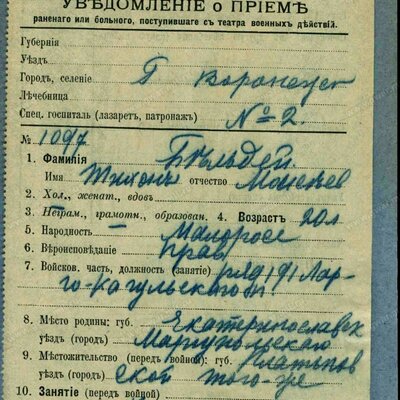 УВѢДОМЛЕНІЕ о ПРІЕМѢ
раненаго или больного, поступившаго съ театра военныхъ дѣйствій.
Губернія
Уѣздъ
Городъ, селеніе г Воронеж
Лѣчебница
Спец. госпиталь (лазаретъ, патронажъ) № 2.
№ 1097
1. Фамилія Бѣльдей
Имя Тихонъ отчество Моисеев
2. Хол., женат., вдовъ
3. Неграм., грамотн., образован. 4. Возрастъ 20 л
5. Народность Малоросс
6. Вѣроисповѣданіе Прав
7. Войсков. часть, должность (занятіе) ряд 191 Ларго-
Кагульскаго п
8. Мѣсто родины: губ. Екатеринославск
уѣздъ (городъ) Мариупольскаго
9. Мѣстожительство (передъ войной): губ.
уѣздъ (городъ) той-же
10. Занятіе (передъ войной)